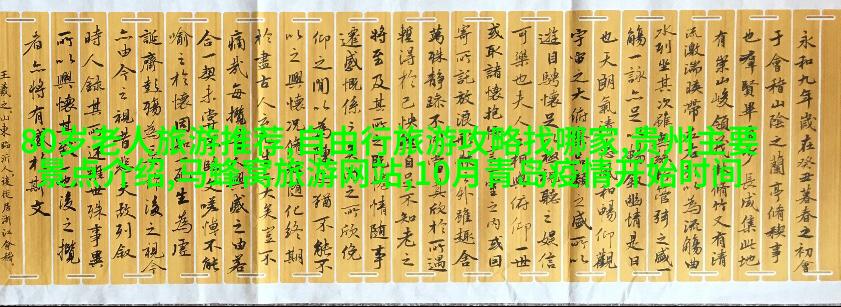 80岁老人旅游推荐,自由行旅游攻略找哪家,贵州主要
景点介绍,马蜂窝旅游网站,10月青岛疫情开始时间
永和九年歲在癸丑暮春之初會
于會稽山陰之蘭亭脩稧事
也群賢畢至少長咸集此地
有崇山峻領茂林脩竹又有清
流激湍暎帶左右引以為流觴曲
水列坐其次雖無絲竹管弦之盛一
觴一詠亦足以暢敘幽情是日
也天朗氣清惠風和暢仰觀
宇宙之大俯察品類之盛所以
遊目騁懷足以極視聽之娛信
可樂也夫人之相與俯仰一世
或取諸懷抱悟言一室之內或因
寄所託放浪形骸之外雖趣舍
萬殊靜躁不同當其欣於所遇
暫得於己快然自足不知老之
將至及其所之既惓情隨事
遷感慨係之矣向之所欣俛
仰之閒以為陳迹猶不能不
以之興懷況脩短隨化終期
於盡古人云死生亦大矣豈不
痛哉每攬昔人興感之由若
合一契未嘗不臨文嗟悼不能
喻之於懷固知一死生為虛
誕齊彭殤為妄作後之視今
亦由今之視昔悲夫故列敘
時人錄其所述雖世殊事異
所以興懷其致一也後之攬
者亦將有感於斯文
王羲之山東臨沂人後徙居浙江會稽